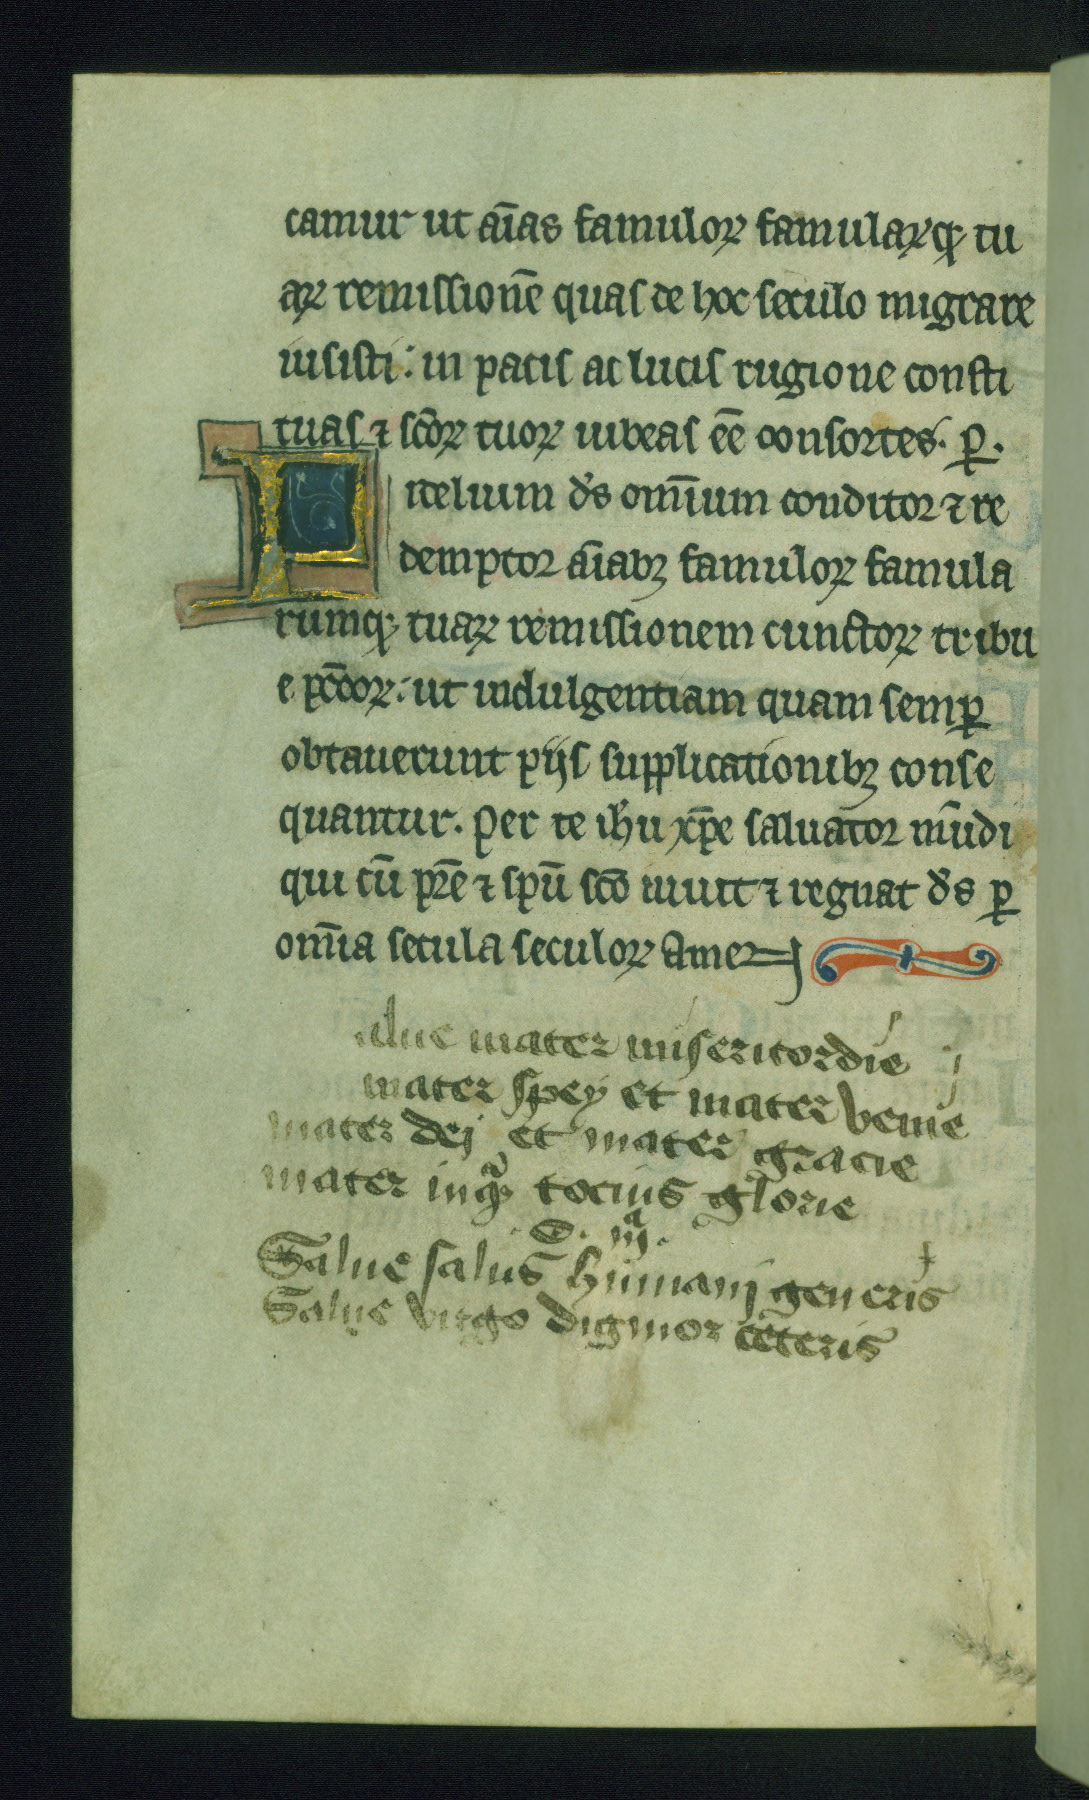 camur ut aı̄as famuloꝝ famulaꝝq; tu
aꝝ remissionē quas de hoc seculo migrare
iusisti: in pacis ac lucis rugione consti
tuas ⁊ sc̄oꝝ tuoꝝ iubeas ēe consortes. ꝑ.
Fidelium d̄s om̄ium conditor ⁊ re
demptor aı̄abꝫ famuloꝝ famula
rumq; tuaꝝ remissionem cunctoꝝ tribu
e pc̄c̄oꝝ: ut indulgentiam quam semꝑ
obtauerunt pijs supplicationibꝫ conse
quantur. Per te ih̄u xp̄e saluator mūdi
qui cū pr̄e ⁊ sp̄u sc̄o uiuit ⁊ regnat d̄s ꝑ
om̄ia secula seculoꝝ Amen
alue mater misericordie
mater spey et mater venie
mater dej et mater gracie
mater tocius glorie
Salue salus humanj generis
Salue virgo dignior ceteris